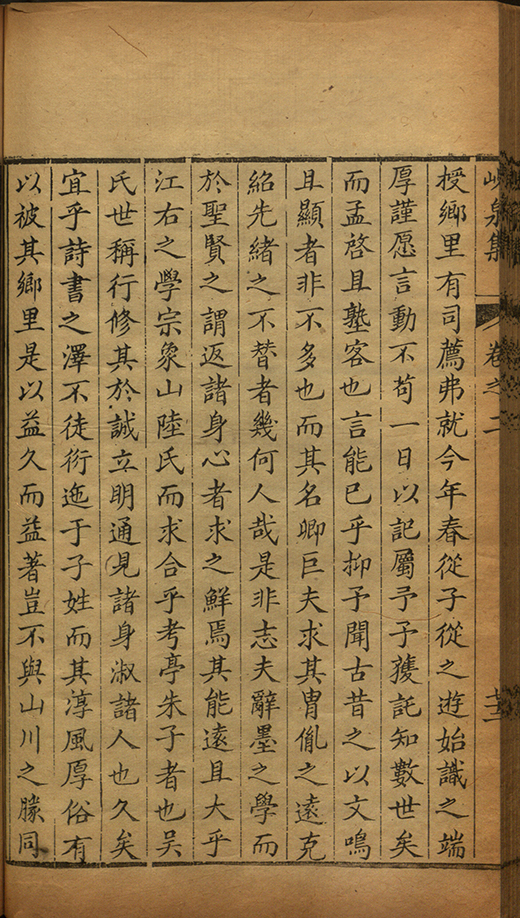 峴泉集
卷之二
十三
授鄉里有司薦弗就今年春從子從之遊始識之端
厚謹愿言動不苟一日以記屬予予獲託知數世矣
而孟啓且塾客也言能已乎抑予聞古昔之以文鳴
且顯者非不多也而其名卿巨夫求其胄胤之遠克
紹先緒之不替者幾何人哉是非志夫辭墨之學而
於聖賢之謂返諸身心者求之鮮焉其能遠且大乎
江右之學宗象山陸氏而求合乎考亭朱子者也吳
氏世稱行修其於誠立明通見諸身淑諸人也久矣
宜乎詩書之澤不徒衍迤于子姓而其淳風厚俗有
以被其鄉里是以益久而益著豈不與山川之勝同